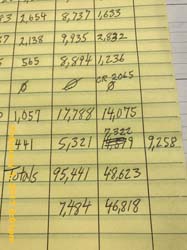 3 2,654 8,737 1,633
7 2,138 9,935 3,832
5 565 8,894 1,236
Ø Ø CR 2065
1,057 17,788 14,075
7,322
441 5,321 9,258
TOTALS 95,441 48,623
7,484 46,818